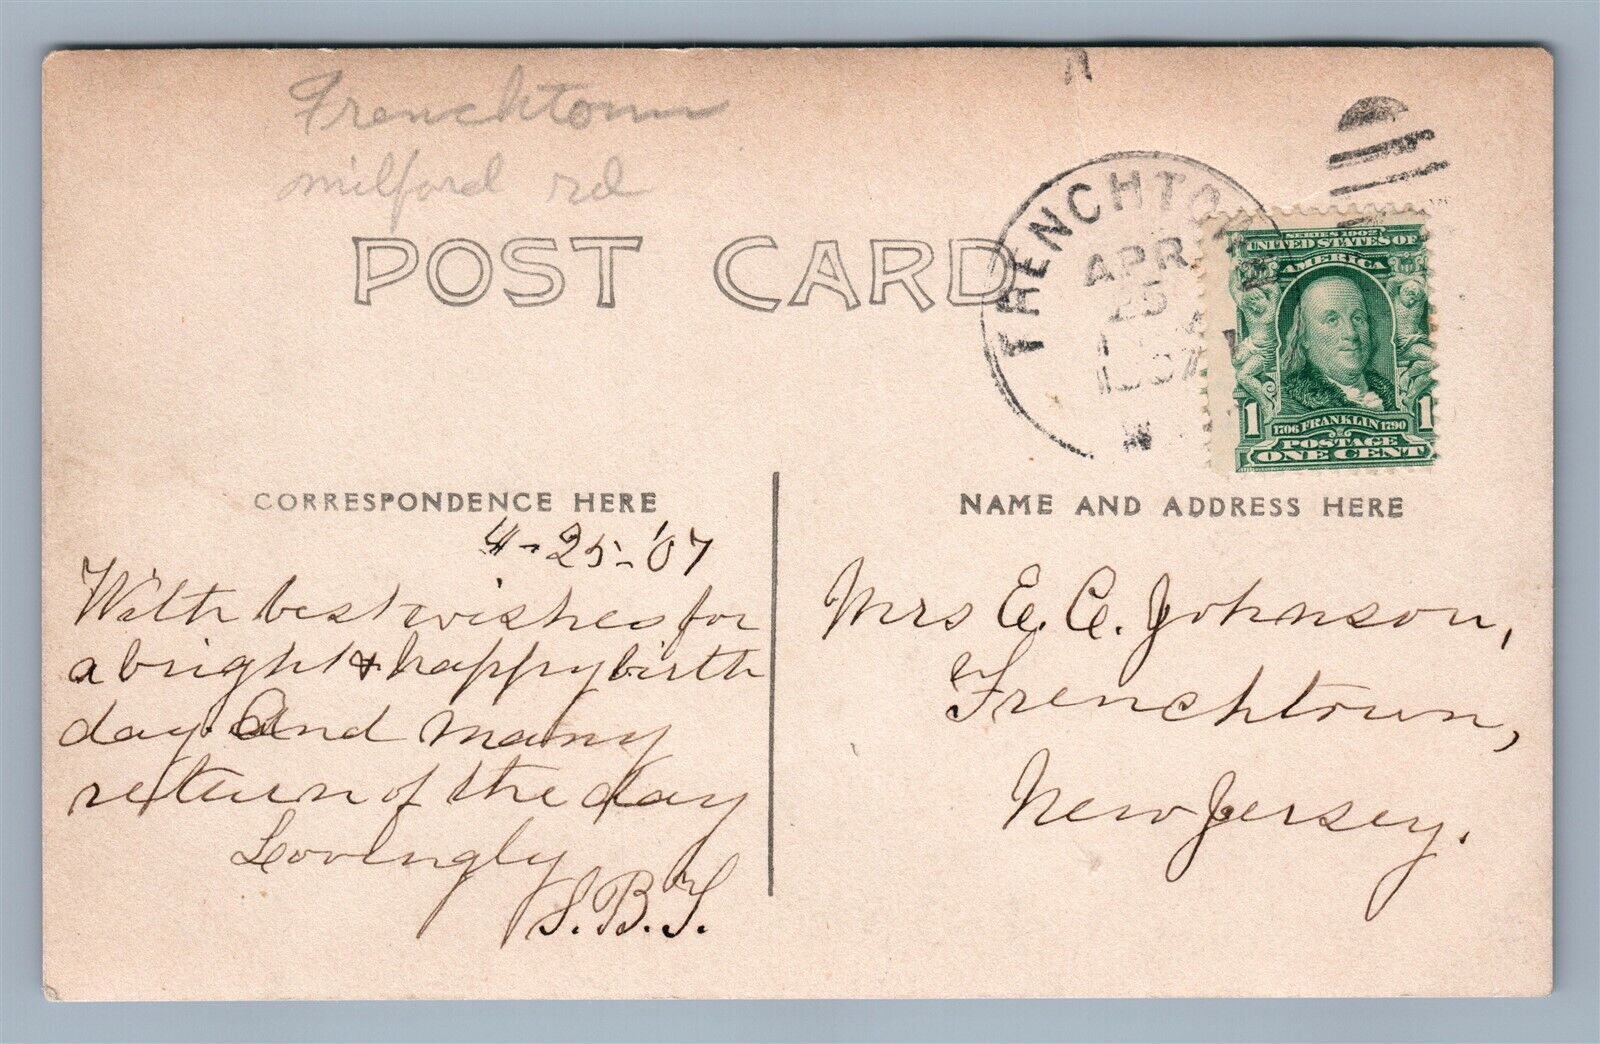 Frenchtown
milford rd
POST CARD
FRENCHTOWN
APR
25
1907
SERIES 1902
UNITED STATES OF
AMERICA
1 1
1706 FRANKLIN 1790
POSTAGE
ONE CENT
CORRESPONDENCE HERE
4-25-'07
With best wishes for
a bright & happy birth
day. And many
return of the day
Lovingly
S.B.S.
NAME AND ADDRESS HERE
Mrs E. C. Johnson,
Frenchtown,
New Jersey.